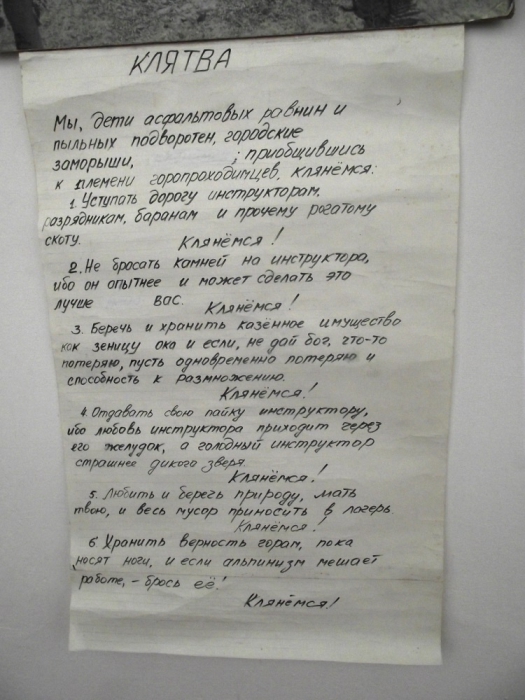 КЛЯТВА
Мы, дети асфальтовых равнин и
пыльных подворотен, городские
заморыши, ; приобщившись
к племени горопроходимцев, клянёмся:
1. Уступать дорогу инструкторам,
разрядникам, баранам и прочему рогатому
скоту. Клянёмся!
2. Не бросать камней на инструктора,
ибо он опытнее и может сделать это
лучше вас. Клянёмся!
3. Беречь и хранить казённое имущество
как зеницу ока и если, не дай бог, что-то
потеряю, пусть одновременно потеряю и
способность к размножению.
Клянёмся!
4. Отдавать свою пайку инструктору,
ибо любовь инструктора приходит через
его желудок, а голодный инструктор
страшнее дикого зверя.
Клянёмся!
5. Любить и беречь природу, мать
твою, и весь мусор приносить в лагерь.
Клянёмся!
6 Хранить верность горам, пока
носят ноги, и если альпинизм мешает
работе, - брось её!
Клянёмся!